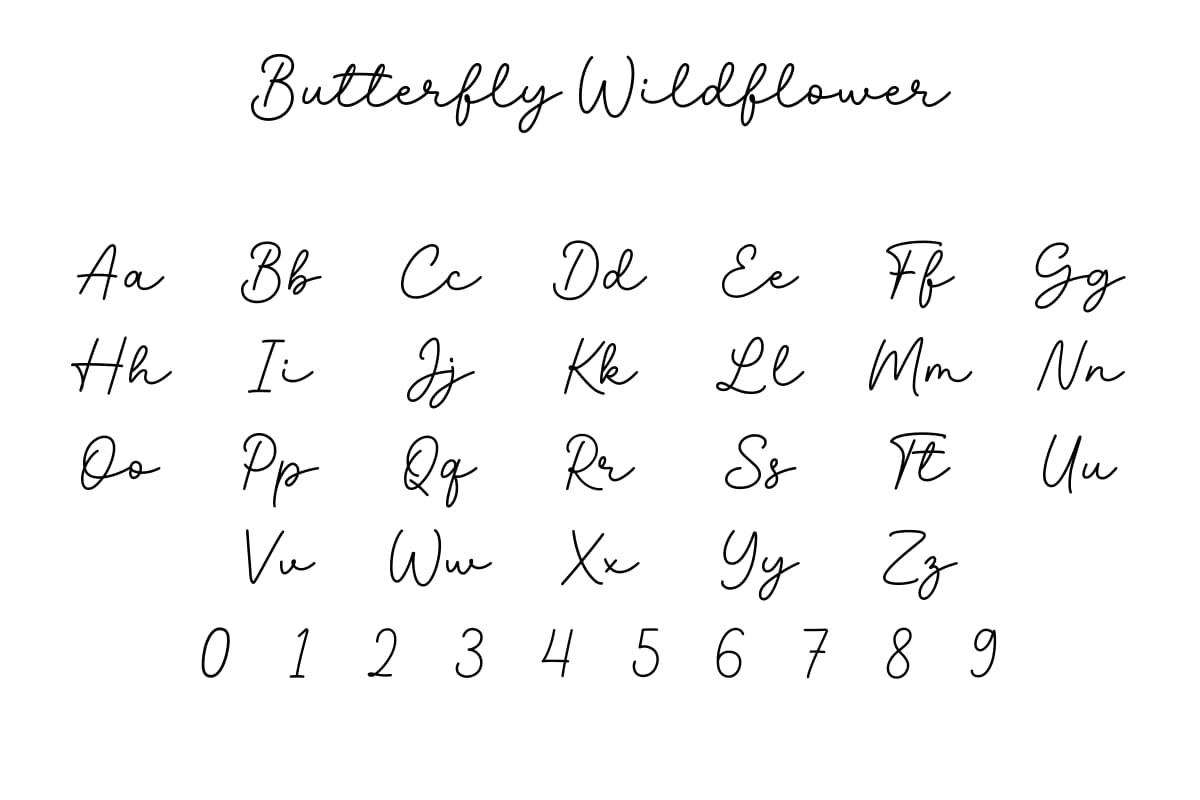 Butterfly Wildflower
Aa Bb Cc Dd Ee Ff Gg
Hh Ii Jj Kk Ll Mm Nn
Oo Pp Qq Rr Ss Tt Uu
Vv Ww Xx Yy Zz
0 1 2 3 4 5 6 7 8 9